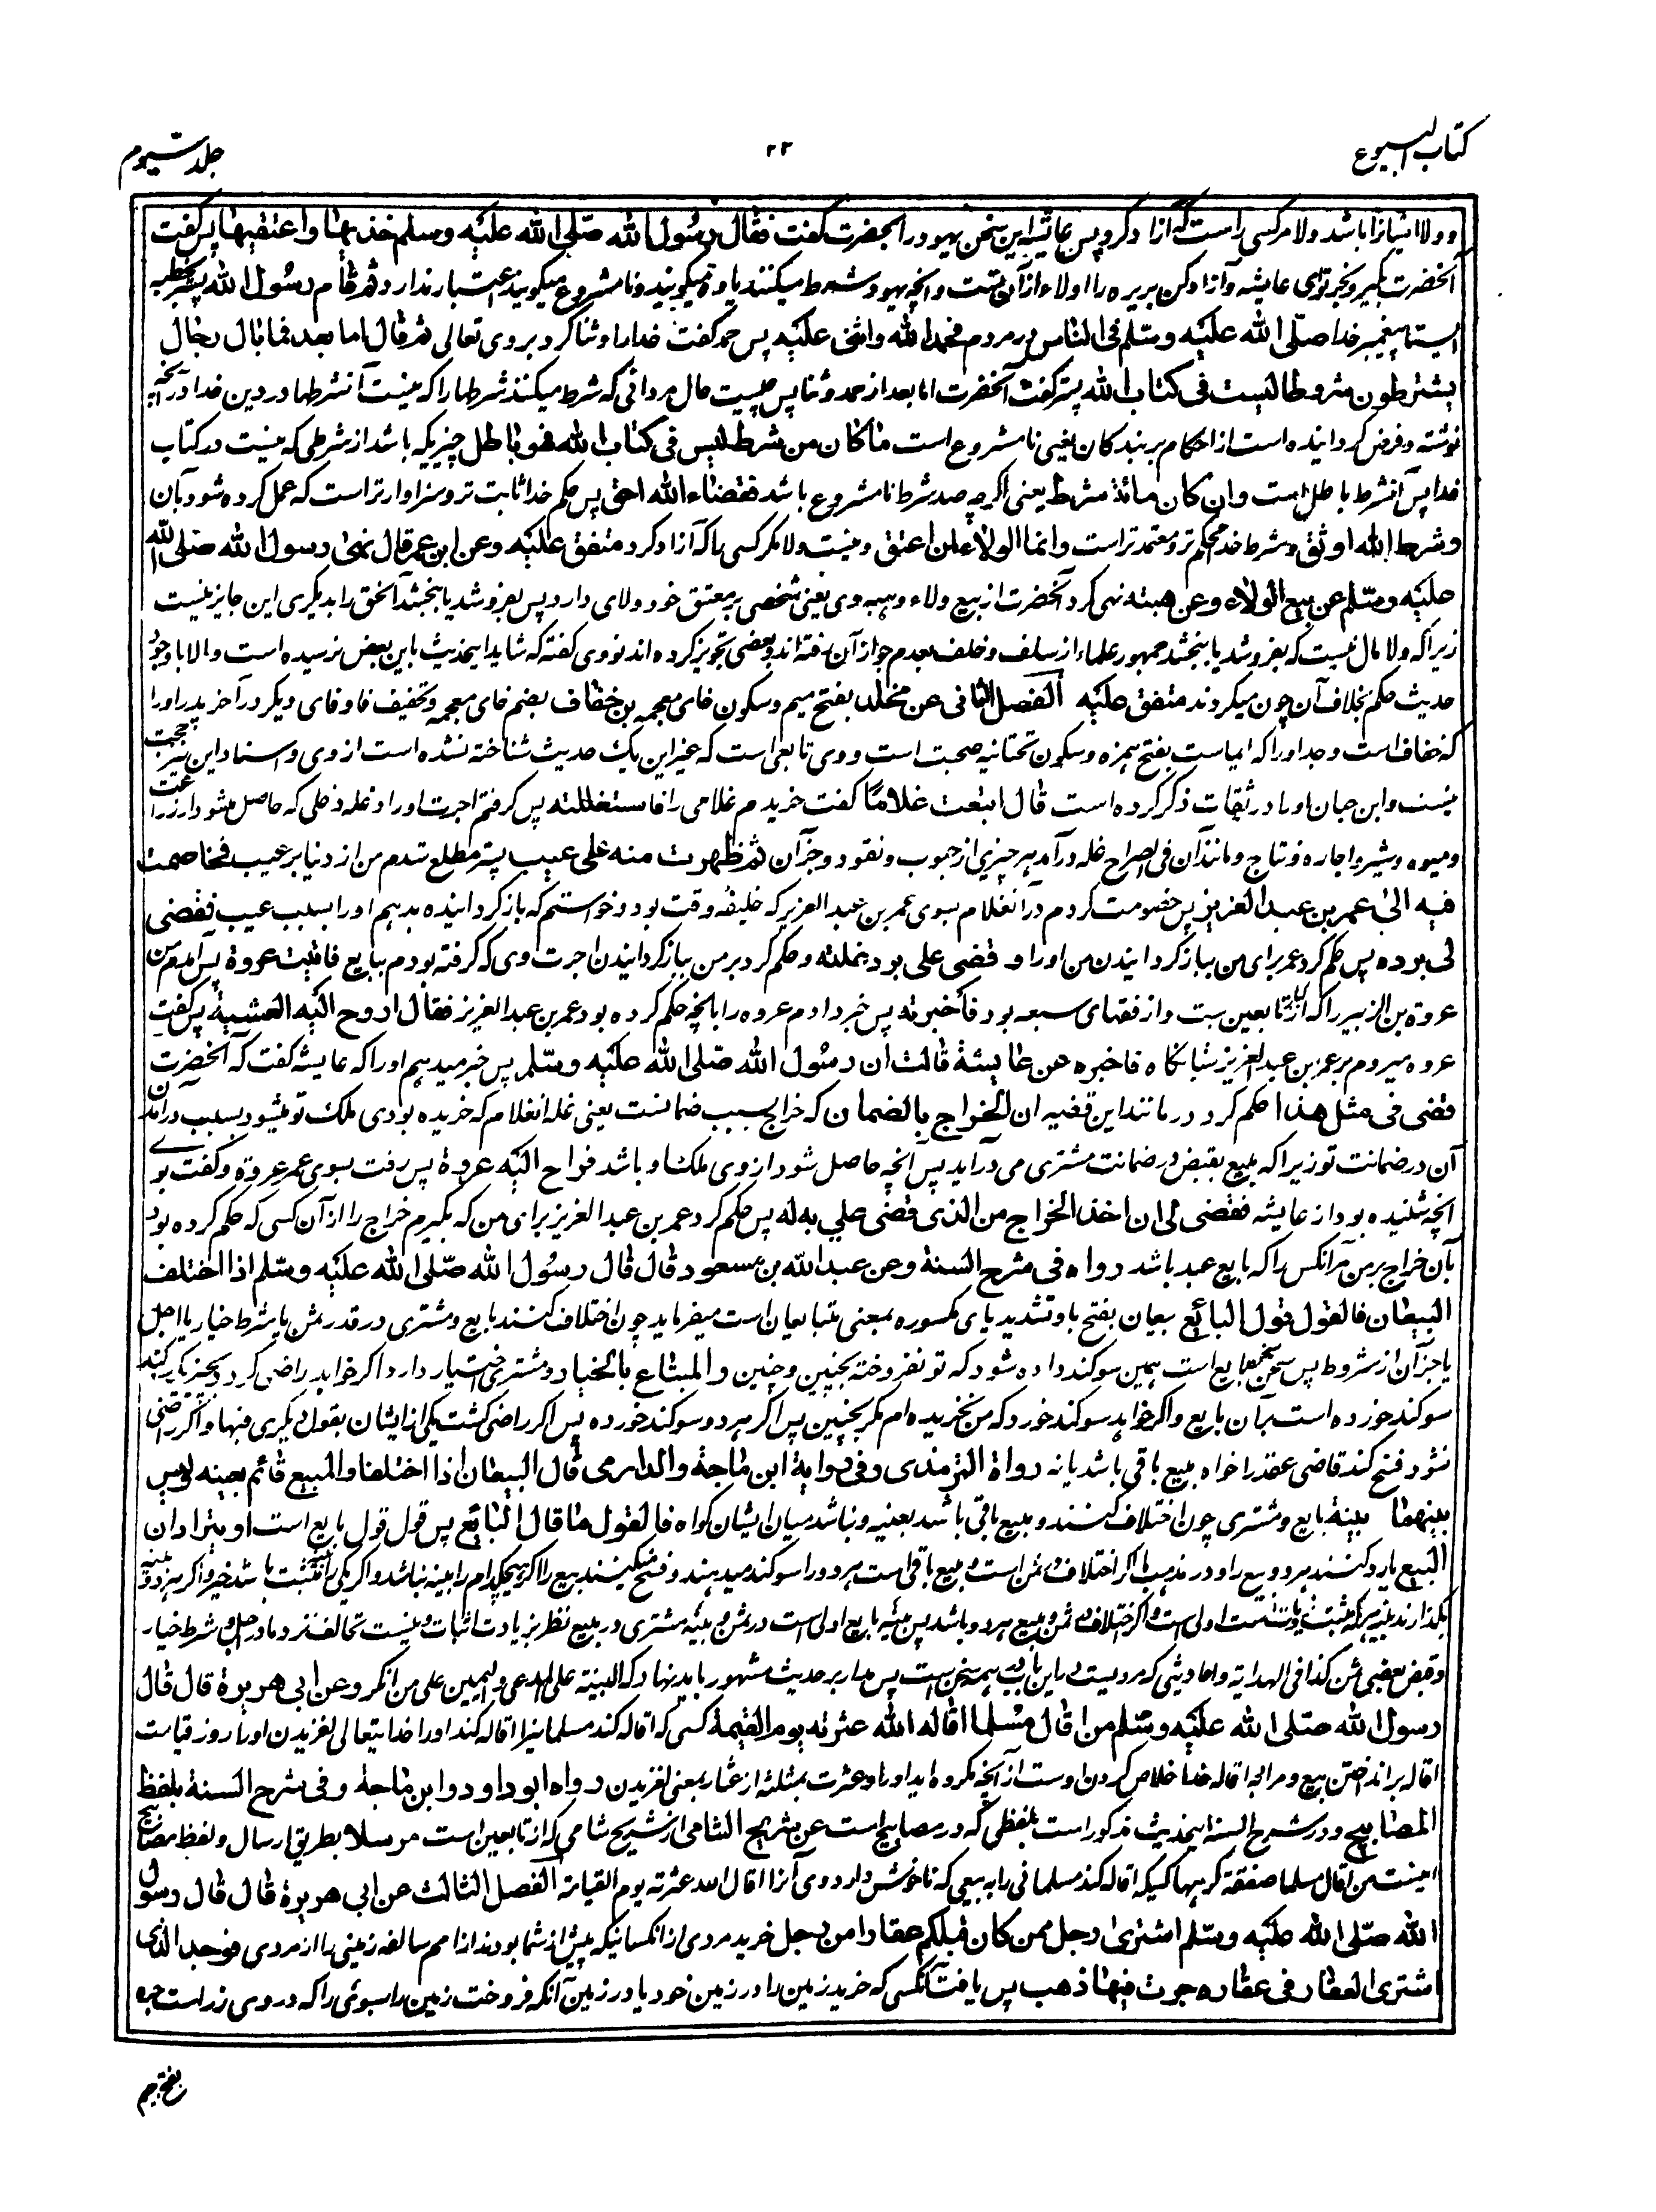 کتاب البیوع
۲۳
جلد سیوم
و ولا ایشانرا باشد ولا مر کسی راست که آزاد کرد پس عایشه این سخن یهود را بحضرت گفت فقال رسول الله صلی الله علیه وسلم خذیها واعتقیها پس گفت
آنحضرت بگیر و بخر تو ای عایشه و آزاد کن بریره را و ولاء از آن تست و آنچه یهود شرط میکنند یاوه میگویند و نامشروع میگویند اعتبار ندارد ثم قام رسول الله پستر بخطبه
ایستاد پیغمبر خدا صلی الله علیه وسلم فی الناس در مردم فحمد الله واثنی علیه پس حمد گفت خدا را و ثنا کرد بر وی تعالی ثم قال اما بعد فما بال رجال
یشترطون شروطا لیست فی کتاب الله پستر گفت آنحضرت اما بعد از حمد و ثنا پس چیست حال مردانی که شرط میکنند شرطها را که نیست آنشرطها در دین خدا و آنچه
نوشته و فرض گردانیده است از احکام بر بندگان یعنی نامشروع است ما کان من شرط لیس فی کتاب الله فهو باطل چیزیکه باشد از شرطی که نیست در کتاب
خدا پس آنشرط باطل است وان کان مائة شرط یعنی اگرچه صد شرط نامشروع باشد فقضاء الله احق پس حکم خدا ثابت تر و سزاوارتر است که عمل کرده شود بآن
وشرط الله اوثق و شرط خدا محکم تر و معتمدتر است وانما الولاء لمن اعتق و نیست ولا مگر کسی را که آزاد کرد متفق علیه وعن ابن عمر قال نهی رسول الله صلی الله
علیه وسلم عن بیع الولاء وعن هبته نهی کرد آنحضرت از بیع ولاء و هبه وی یعنی شخصی بر معتق خود ولای دارد پس بفروشد یا ببخشد آنحق را بدیگری این جایز نیست
زیرا که ولا مال نیست که بفروشد یا ببخشد جمهور علماء از سلف و خلف بعدم جواز آن رفته اند و بعضی تجویز کرده اند نووی گفته که شاید اینحدیث باین بعض نرسیده است والا با وجود
حدیث حکم بخلاف آن چون میکردند متفق علیه الفصل الثانی عن مخلد بفتح میم و سکون خای معجمه بن خفاف بضم خای معجمه و تخفیف فا و فای دیگر در آخر پدر او را
که خفاف است و جد او را که ایماست بفتح همزه و سکون تحتانیه صحبت است و وی تابعی است که غیر این یک حدیث شناخته نشده است از وی و اسناد این نیز حجت
نیست و ابن حبان او را در ثقات ذکر کرده است قال ابتعت غلاما گفت خریدم غلامی را فاستغللته پس گرفتم اجرت او را و غله دخلی که حاصل میشود از زراعت
و میوه و شیر و اجاره و نتاج و مانند آن فی الصراح غله درآمد هر چیزی از حبوب و نقود و جز آن ثم ظهرت منه علی عیب پستر مطلع شدم من از دنیا بر عیب فخاصمت
فیه الی عمر بن عبد العزیز پس خصومت کردم در آنغلام بسوی عمر بن عبد العزیز که خلیفه وقت بود و خواستم که باز گردانیده بدهم او را بسبب عیب فقضی
لی برده پس حکم کرد عمر برای من بباز گردانیدن من او را و قضی علی برد غلته و حکم کرد بر من بباز گردانیدن اجرت وی که گرفته بودم ببایع فاتیت عروة پس آمدم من
عروة بن الزبیر را که از کبار تابعین ست و از فقهای سبعه بود فاخبرته پس خبر دادم عروه را بآنچه حکم کرده بود عمر بن عبد العزیز فقال اروح الیه العشیة پس گفت
عروه میروم بر عمر بن عبد العزیز شبانگاه فاخبره عن عایشة قالت ان رسول الله صلی الله علیه وسلم پس خبر میدهم او را که عایشه گفت که آنحضرت
قضی فی مثل هذا حکم کرد در مانند این قضیه ان الخراج بالضمان که خراج بسبب ضمانست یعنی غله آنغلام که خریده بودی ملک تو میشود بسبب درآمدن
آن در ضمانت تو زیرا که مبیع بقبض در ضمانت مشتری می درآید پس آنچه حاصل شود از وی ملک او باشد فراح الیه عروة پس رفت بسوی عمر عروه و گفت بوے
آنچه شنیده بود از عایشه فقضی لی ان اخذ الخراج من الذی قضی علی به له پس حکم کرد عمر بن عبد العزیز برای من که بگیرم خراج را از آن کسی که حکم کرده بود
بآن خراج بر من مر آنکس را که بایع عبد باشد رواه فی شرح السنة وعن عبد الله بن مسعود قال قال رسول الله صلی الله علیه وسلم اذا اختلف
البیعان فالقول قول البائع بیعان بفتح با و تشدید یای مکسوره بمعنی متبایعان است میفرماید چون اختلاف کنند بایع و مشتری در قدر ثمن یا شرط خیار یا اجل
یا جز آن از شروط پس سخن بایع است یمین سوگند داده شود که تو نفروخته بچنین و چنین والمبتاع بالخیار و مشتری اختیار دارد اگر خواهد راضی گردد بچیزیکه
سوگند خورده است بآن بایع و اگر خواهد سوگند خورد که من نخریده ام مگر بچنین پس اگر هر دو سوگند خورده پس اگر راضی گشت یکی از ایشان بقول دیگری فبها و اگر راضی
نشود فسخ کند قاضی عقد را خواه مبیع باقی باشد یا نه رواه الترمذی وفی روایة ابن ماجة والدارمی قال البیعان اذا اختلفا والمبیع قائم بعینه ولیس
بینهما بینة بایع و مشتری چون اختلاف کنند و مبیع باقی باشد بعینه و نباشد میان ایشان گواه فالقول ما قال البائع پس قول قول بایع است او یترادان
البیع یا رد کنند هر دو بیع را و در مذهب ما اگر اختلاف در ثمن است و مبیع باقی است هر دو را سوگند میدهند و فسخ میکنند بیع را اگر هیچکدام را بینه نباشد و اگر یکی را بینه باشد
وقبض بعضی ثمن کذا فی الهدایه و احادیثی که مرویست در این باب پس مدار بر حدیث مشهور باید نهاد که البینة علی المدعی والیمین علی من انکر وعن ابی هریرة قال قال
رسول الله صلی الله علیه وسلم من اقال مسلما اقاله الله عثرته یوم القیمة کسی که اقاله کند مسلمانیرا اقاله کند او را خدایتعالی لغزیدن او را روز قیامت
اقاله برانداختن بیع و مراد از اقاله خدا خلاص کردن اوست از آنچه مکروه آید او را و عثرت بمثلثه از عثار بمعنی لغزیدن رواه ابو داود وابن ماجة وفی شرح السنة بلفظ
المصابیح و در شرح السنه اینحدیث مذکور است بلفظی که در مصابیح است عن شریح الشامی از شریح شامی که از تابعین است مرسلا بطریق ارسال و لفظ مصابیح
اینست من اقال مسلما صفقة کرهها کسیکه اقاله کند مسلمانی را به بیعی که ناخوش دارد وی آنرا اقال الله عثرته یوم القیامة الفصل الثالث عن ابی هریرة قال قال رسول
الله صلی الله علیه وسلم اشتری رجل ممن کان قبلکم عقارا من رجل خرید مردی از آنکسانیکه پیش از شما بودند از امم سالفه زمینی را از مردی فوجد الذی
اشتری العقار فی عقاره جرت فیها ذهب پس یافت آنکسی که خرید زمین را در زمین خود یا در زمین آنکه فروخت زمین را سبوئی را که در وی زر است جره
بفتح جیم